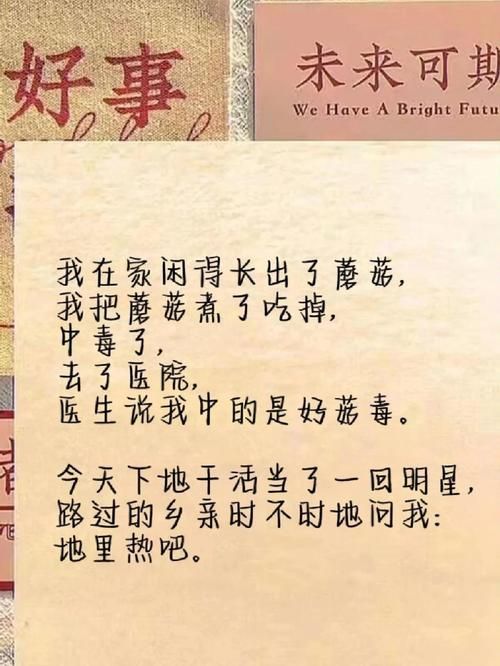 好事
未来可期
We Have A Bright Futu
我在家闲得长出了蘑菇，
我把蘑菇煮了吃掉，
中毒了，
去了医院，
医生说我中的是好菇毒。
今天下地干活当了一回明星，
路过的乡亲时不时地问我：
地里热吧。